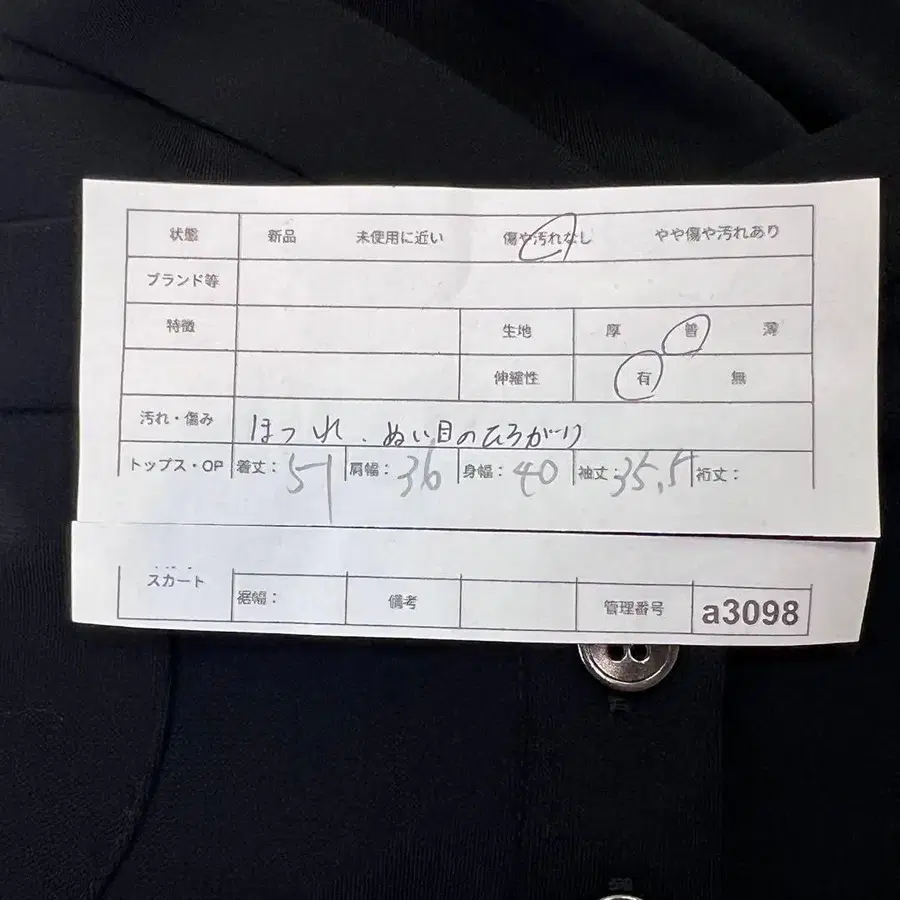 状態 新品 未使用に近い 傷や汚れなし やや傷や汚れあり
ブランド等
特徴 生地 厚 普 薄
伸縮性 有 無
汚れ・傷み ほつれ、ぬい目のひろがり
トップス・OP 着丈：51 肩幅：36 身幅：40 袖丈：35.5 裄丈：
スカート 裾幅： 備考 管理番号 a3098